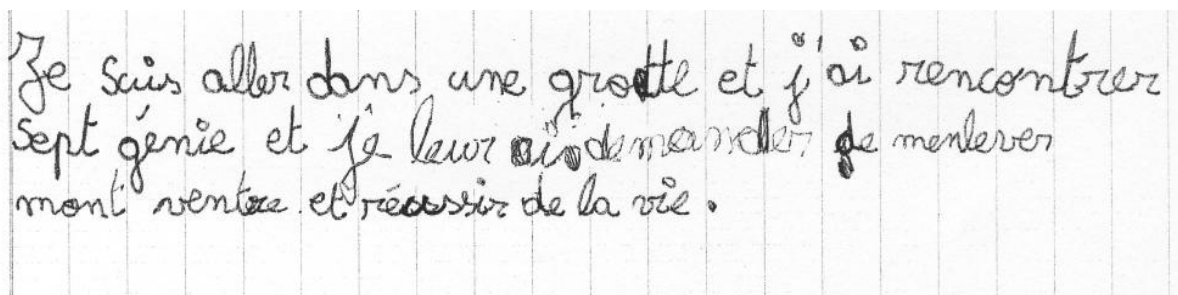 Je suis aller dans une grotte et j'ai rencontrer
sept génie et je leur ai demander de menlever
mont ventre et réussir de la vie.